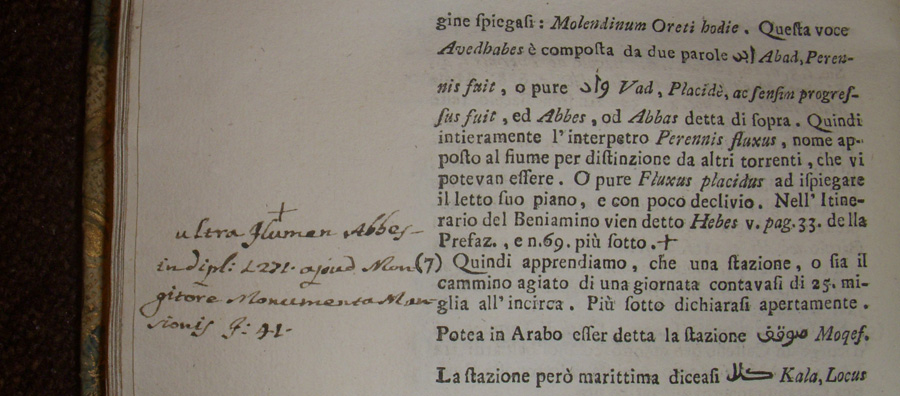 gine ſpiegaſi : Molendinum Oreti hodie . Queſta voce
Avedhabes è compoſta da due parole ابد Abad, Peren-
nis fuit , o pure واد Vad , Placidè, ac ſenſim progreſ-
ſus fuit , ed Abbes , od Abbas detta di ſopra . Quindi
intieramente l' interpetro Perennis fluxus , nome ap-
poſto al fiume per diſtinzione da altri torrenti , che vi
potevan eſſere . O pure Fluxus placidus ad iſpiegare
il letto ſuo piano , e con poco declivio . Nell' Itine-
rario del Beniamino vien detto Hebes v. pag. 33. della
Prefaz. , e n. 69. più ſotto . +
(7) Quindi apprendiamo , che una ſtazione , o ſia il
cammino agiato di una giornata contavaſi di 25. mi-
glia all' incirca . Più ſotto dichiaraſi apertamente .
Potea in Arabo eſſer detta la ſtazione موقف Moqef.
La ſtazione però marittima diceaſi كلا Kala, Locus
+
ultra Flumen Abbes
in dipl: 1271. apud Mon
gitore Monumenta Man-
sionis F: 41.